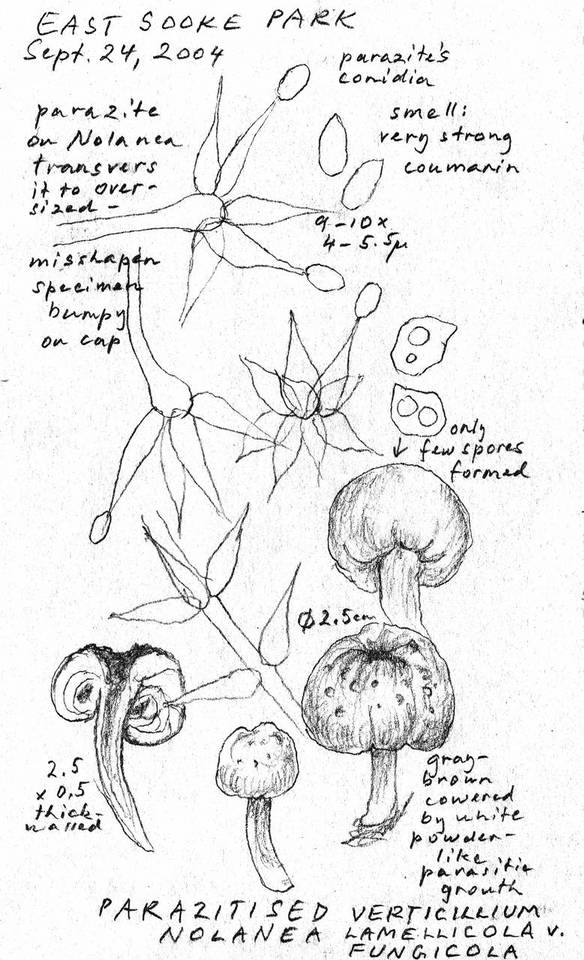 EAST SOOKE PARK
Sept. 24, 2004
parazite's
conidia
parazite
on Nolanea
transvers
it to over-
sized -
misshapen
specimen
bumpy
on cap
smell:
very strong
coumarin
9-10x
4-5.5µ
only
few spores
formed
Ø2.5cm
2.5
x 0,5
thick-
walled
gray-
brown
cowered
by white
powder-
like
parasitic
grouth
PARAZITISED VERTICILLIUM
NOLANEA LAMELLICOLA v.
FUNGICOLA